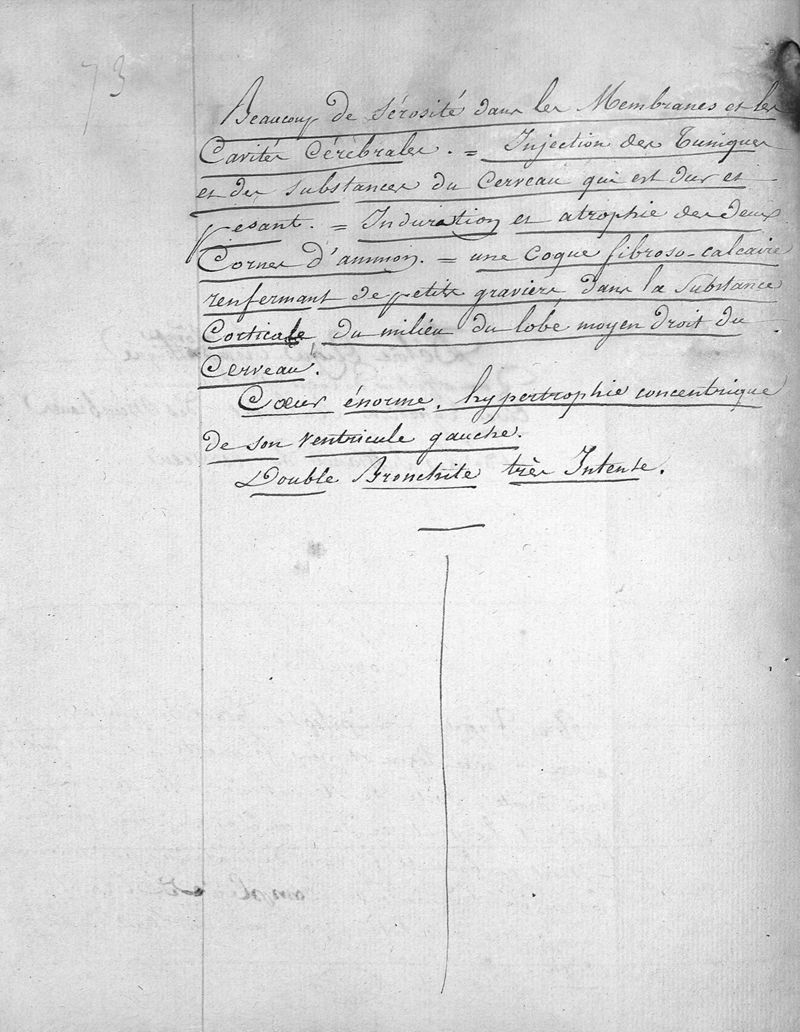 73
Beaucoup de sérosité dans les Membranes et les
Cavités Cérébrales. = Injection des Tuniques
et des substances du Cerveau qui est dur et
pesant. = Induration et atrophie des deux
Cornes d'ammon. = une Coque fibroso-calcaire
renfermant de petits graviers dans la Substance
Corticale du milieu du lobe moyen droit du
Cerveau.
Cœur énorme, hypertrophie concentrique
de son ventricule gauche.
Double Bronchite très Intense.